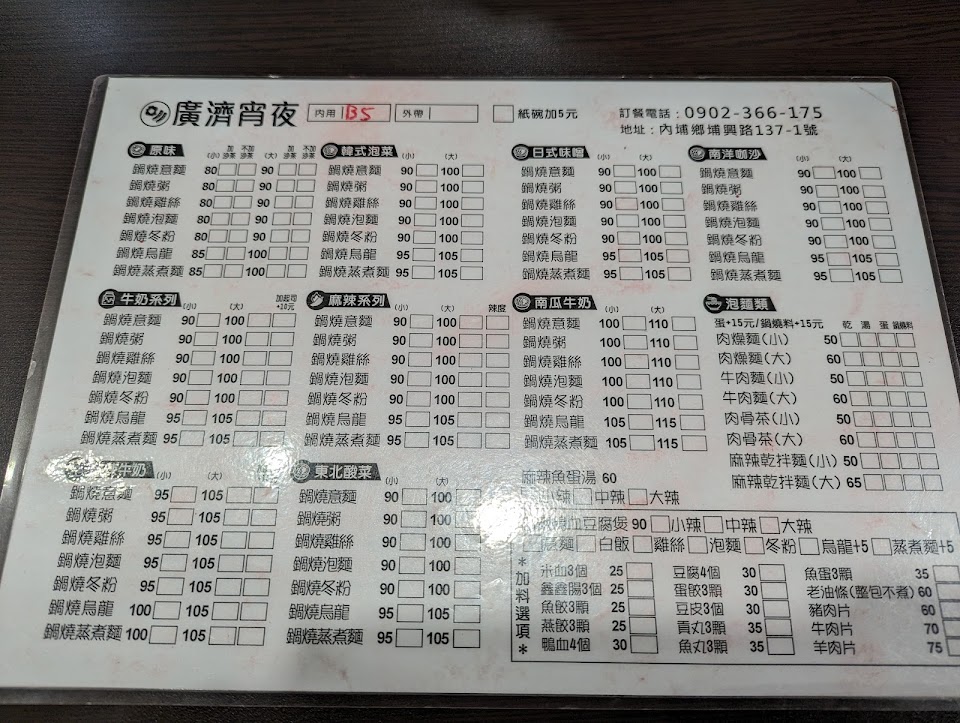 廣濟宵夜 內用 B5 外帶 紙碗加5元 訂餐電話：0902-366-175
地址：內埔鄉埔興路137-1號
原味 (小) 加沙茶 不加沙茶 (大) 加沙茶 不加沙茶
鍋燒意麵 80 90
鍋燒粥 80 90
鍋燒雞絲 80 90
鍋燒泡麵 80 90
鍋燒冬粉 80 90
鍋燒烏龍 85 100
鍋燒蒸煮麵 85 100
韓式泡菜 (小) (大)
鍋燒意麵 90 100
鍋燒粥 90 100
鍋燒雞絲 90 100
鍋燒泡麵 90 100
鍋燒冬粉 90 100
鍋燒烏龍 95 105
鍋燒蒸煮麵 95 105
日式味噌 (小) (大)
鍋燒意麵 90 100
鍋燒粥 90 100
鍋燒雞絲 90 100
鍋燒泡麵 90 100
鍋燒冬粉 90 100
鍋燒烏龍 95 105
鍋燒蒸煮麵 95 105
南洋咖沙 (小) (大)
鍋燒意麵 90 100
鍋燒粥 90 100
鍋燒雞絲 90 100
鍋燒泡麵 90 100
鍋燒冬粉 90 100
鍋燒烏龍 95 105
鍋燒蒸煮麵 95 105
牛奶系列 (小) (大) 加起司+10元
鍋燒意麵 90 100
鍋燒粥 90 100
鍋燒雞絲 90 100
鍋燒泡麵 90 100
鍋燒冬粉 90 100
鍋燒烏龍 95 105
鍋燒蒸煮麵 95 105
麻辣系列 (小) (大) 辣度
鍋燒意麵 90 100
鍋燒粥 90 100
鍋燒雞絲 90 100
鍋燒泡麵 90 100
鍋燒冬粉 90 100
鍋燒烏龍 95 105
鍋燒蒸煮麵 95 105
南瓜牛奶 (小) (大)
鍋燒意麵 100 110
鍋燒粥 100 110
鍋燒雞絲 100 110
鍋燒泡麵 100 110
鍋燒冬粉 100 110
鍋燒烏龍 105 115
鍋燒蒸煮麵 105 115
泡麵類
蛋+15元/鍋燒料+15元 乾 湯 蛋 鍋燒料
肉燥麵(小) 50
肉燥麵(大) 60
牛肉麵(小) 50
牛肉麵(大) 60
肉骨茶(小) 50
肉骨茶(大) 60
麻辣乾拌麵(小) 50
麻辣乾拌麵(大) 65
牛奶 (小) (大)
鍋燒意麵 95 105
鍋燒粥 95 105
鍋燒雞絲 95 105
鍋燒泡麵 95 105
鍋燒冬粉 95 105
鍋燒烏龍 100 105
鍋燒蒸煮麵 100 105
東北酸菜 (小) (大)
鍋燒意麵 90 100
鍋燒粥 90 100
鍋燒雞絲 90 100
鍋燒泡麵 90 100
鍋燒冬粉 90 100
鍋燒烏龍 95 105
鍋燒蒸煮麵 95 105
麻辣魚蛋湯 60
小辣 中辣 大辣
血豆腐煲 90 小辣 中辣 大辣
麵 白飯 雞絲 泡麵 冬粉 烏龍+5 蒸煮麵+5
*加料選項*
米血3個 25 豆腐4個 30 魚蛋3顆 35
鑫鑫腸3個 25 蛋餃3顆 30 老油條(整包不煮) 60
魚餃3顆 25 豆皮3個 30 豬肉片 60
燕餃3顆 25 貢丸3顆 35 牛肉片 70
鴨血4個 30 魚丸3顆 35 羊肉片 75